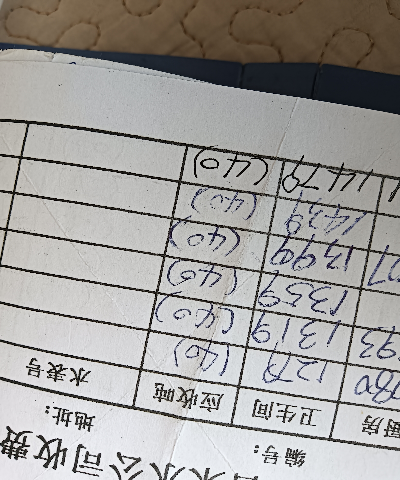 来水公司收费
编号: 地址:
厨房 卫生间 应收吨 水表号
80 1279 (40)
93 1319 (40)
1359 (40)
07 1399 (40)
1439 (40)
1479 (40)